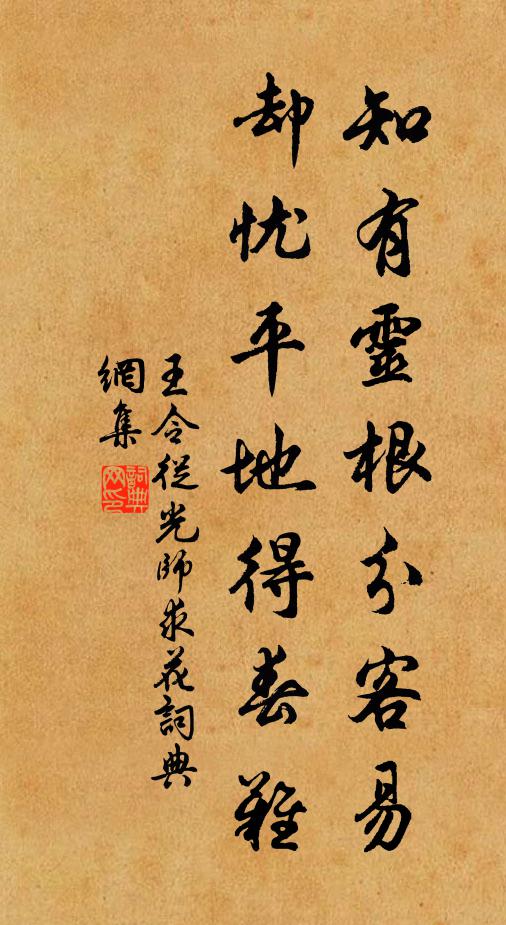 知有靈根分客易
却忧平地得春難
王令從光師求花詞典
網集
詞典
网印